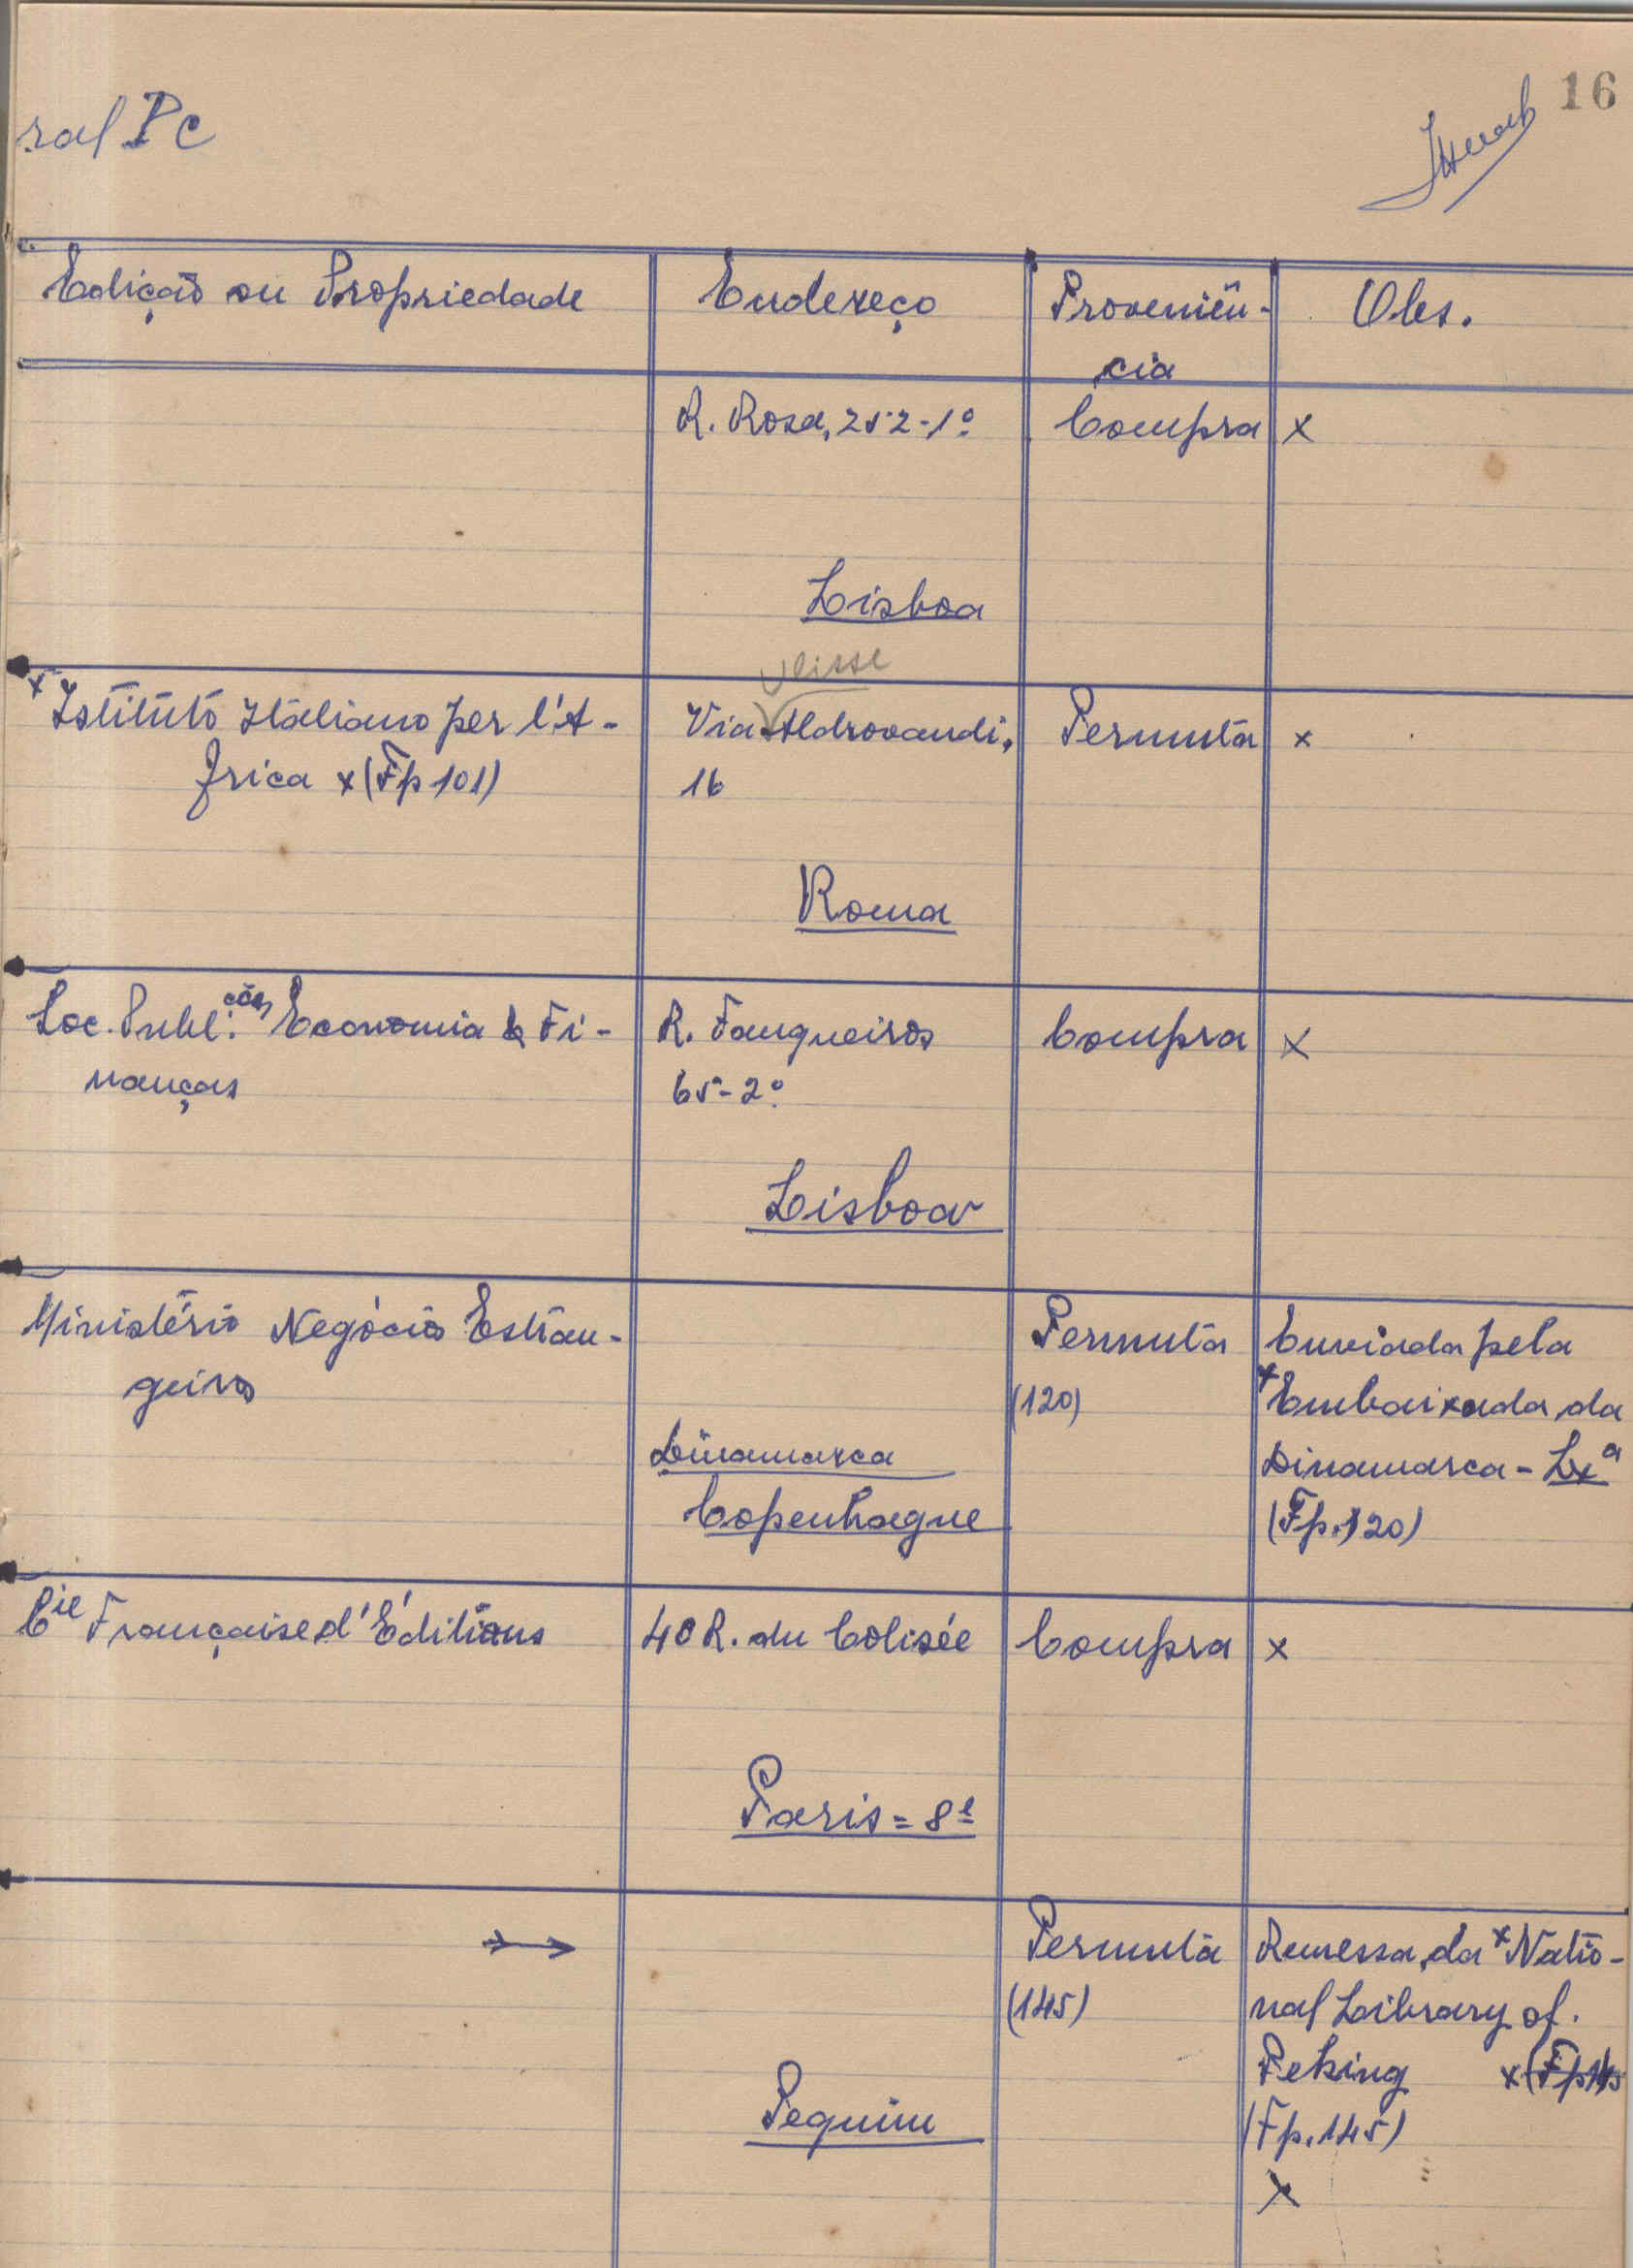 16
ral Pc
Edição ou Propriedade Endereço Proveniên- Obs.
cia
R. Rosa, 252-1º Compra x
Lisboa
Ulisse
x Istituto Italiano per l'A- Via Aldrovandi, Permuta x
frica x (Fp 101) 16
Roma
Soc. Publ.ções Economia & Fi- R. Fanqueiros Compra x
nanças 65-2º
Lisboa
Ministério Negócios Estran- Permuta Enviada pela
geiros (120) x Embaixada da
Dinamarca Dinamarca - Lxª
Copenhague (Fp. 120)
Cie Française d'Éditions 40 R. du Colisée Compra x
Paris = 8e
Permuta Remessa da x Natio-
(145) nal Library of
Peking x (Fp 145
Pequim (Fp. 145)
x